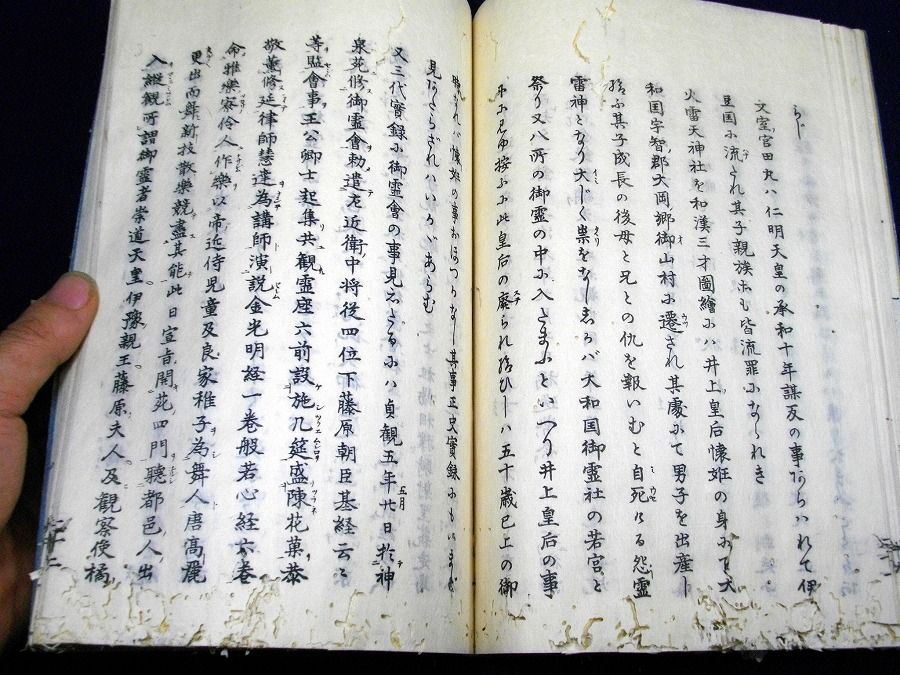 らじ
文室宮田丸ハ仁明天皇の承和十年謀反の事あらハれて伊
豆国に流され其子親族出も皆流罪になられき
火雷天神社を和漢三才圖繪ハ井上皇后懐妊の身にて大
和国宇智郡大岡郷御山村に遷され其處にて男子を出産し
給ふ其子成長の後母と兄との仇を報いむと自死ける怨霊
雷神となり大じく祟をなししかバ大和国御霊社の若宮と
祭り又八所の御霊の中に入たまふといへり井上皇后の事
ふ見ゆ按ふに此皇后の廃られ給ひしハ五十歳已上の御
時なれバ懐妊の事おほつかなし其事正史實録にもいまだ
見あたらざれハいかゞあらむ
又三代實録に御霊會の事見えたるにハ貞観五年五月廿日於神
泉苑修御霊會勅遣左近衛中将従四位下藤原朝臣基経云々
等監會事王公卿士起集共観霊座六前設施几筵盛陳花菓恭
敬薫修延律師慧達為講師演説金光明経一巻般若心経六巻
命雅樂寮伶人作樂以帝近侍児童及良家稚子為舞人唐高麗
更出而舞新技散樂競盡其能此日宣旨開苑四門聴都邑人出
入縦観所謂御霊者崇道天皇伊豫親王藤原夫人及観察使橘